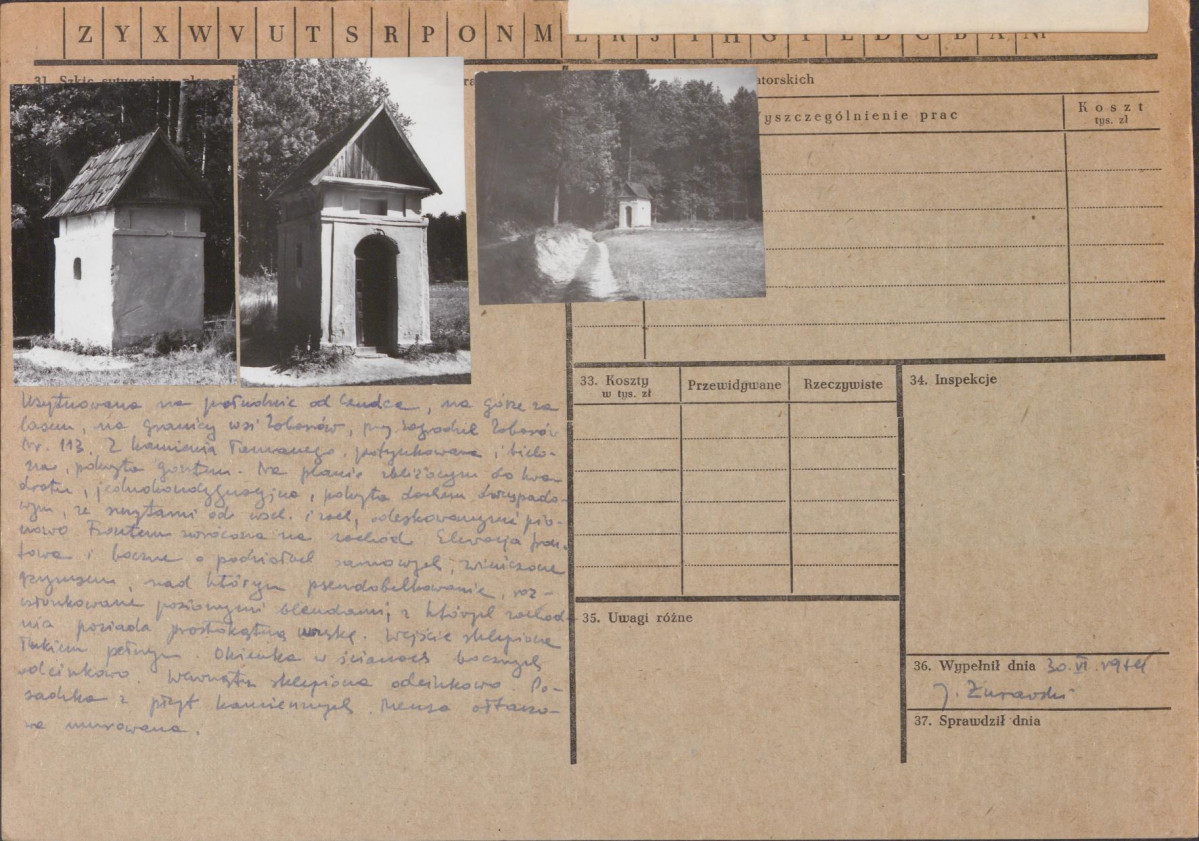 Z Y X W V U T S R P O N M
31. Szkic sytuacyjny
atorskich
yszczególnienie prac
Koszt
tys. zł
Usytuowana na południe od, na górze za
lasem, na granicy wsi Łobzów, przy zagrodzie Łobzów
Nr. 113. Z kamienia łamanego, potynkowana i bielo-
na, pokryta gontem. Na planie zbliżonym do kwa-
dratu, jednokondygnacyjna, pokryta dachem dwuspado-
wym, ze szczytami od wsch. i zach, odeskowanymi pio-
nowo. Frontem zwrócona na zachód. Elewacja fron-
towa i boczne o podziałach ramowych, zwieńczone
gzymsem, nad którym pseudobelkowanie, roz-
członkowane poziomymi blendami, z których zachod-
nia posiada prostokątną wnękę. Wejście sklepione
łukiem pełnym. Okienka w ścianach bocznych
odcinkowo. Wewnątrz sklepiona odcinkowo. Po-
sadzka z płyt kamiennych. Mensa ołtarzo-
wa murowana.
33. Koszty
w tys. zł
Przewidywane
Rzeczywiste
34. Inspekcje
35. Uwagi różne
36. Wypełnił dnia 30. VI.
J. Żurawski
37. Sprawdził dnia